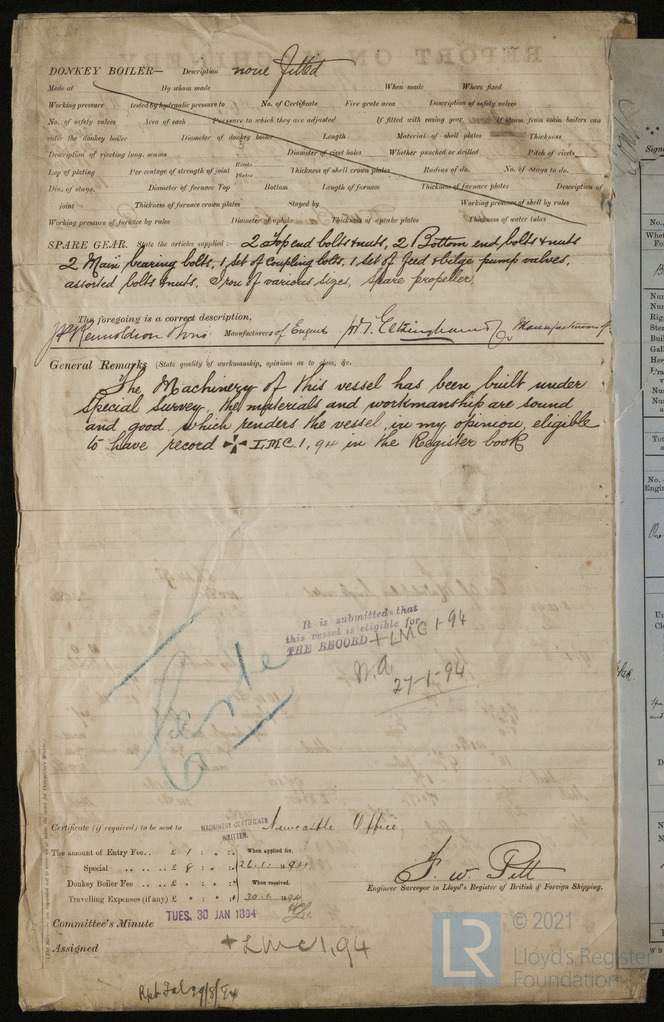 DONKEY BOILER— Description none fitted
Made at By whom made When made Where fixed
Working pressure tested by hydraulic pressure to No. of Certificate Fire grate area Description of safety valves
No. of safety valves Area of each Pressure to which they are adjusted If fitted with easing gear If steam from main boilers can
enter the donkey boiler Diameter of donkey boiler Length Material of shell plates Thickness
Description of riveting long. seams Diameter of rivet holes Whether punched or drilled Pitch of rivets
Lap of plating Per centage of strength of joint Rivets Plates Thickness of shell crown plates Radius of do. No. of Stays to do.
Dia. of stays. Diameter of furnace Top Bottom Length of furnace Thickness of furnace plates Description of
joint Thickness of furnace crown plates Stayed by Working pressure of shell by rules
Working pressure of furnace by rules Diameter of uptake Thickness of uptake plates Thickness of water tubes
SPARE GEAR. State the articles supplied:— 2 Top end bolts & nuts, 2 Bottom end bolts & nuts
2 Main bearing bolts, 1 set of coupling bolts, 1 set of feed & bilge pump valves,
assorted bolts & nuts, Iron of various sizes, spare propeller
The foregoing is a correct description,
Manufacturers of Engines Manufacturer of
General Remarks (State quality of workmanship, opinions as to class, &c.
The Machinery of this vessel has been built under
special survey, the materials and workmanship are sound
and good, which renders the vessel, in my opinion, eligible
to have record ✠ LMC. 1, 94 in the Register book
It is submitted that
this vessel is eligible for
THE RECORD + LMC 1-94
27-1-94
Certificate (if required) to be sent to Newcastle Office
MACHINERY CERTIFICATE
WRITTEN.
The amount of Entry Fee.. £ 1 : : When applied for,
Special .. £ 8 : : 26.1.1894
Donkey Boiler Fee .. £ : : When received,
Travelling Expenses (if any) £ : : 30.1.1894
F. W. Pett
Engineer Surveyor to Lloyd's Register of British & Foreign Shipping.
Committee's Minute TUES. 30 JAN 1894
Assigned + LMC 1,94
© 2021
LR
Lloyd's Register
Foundation